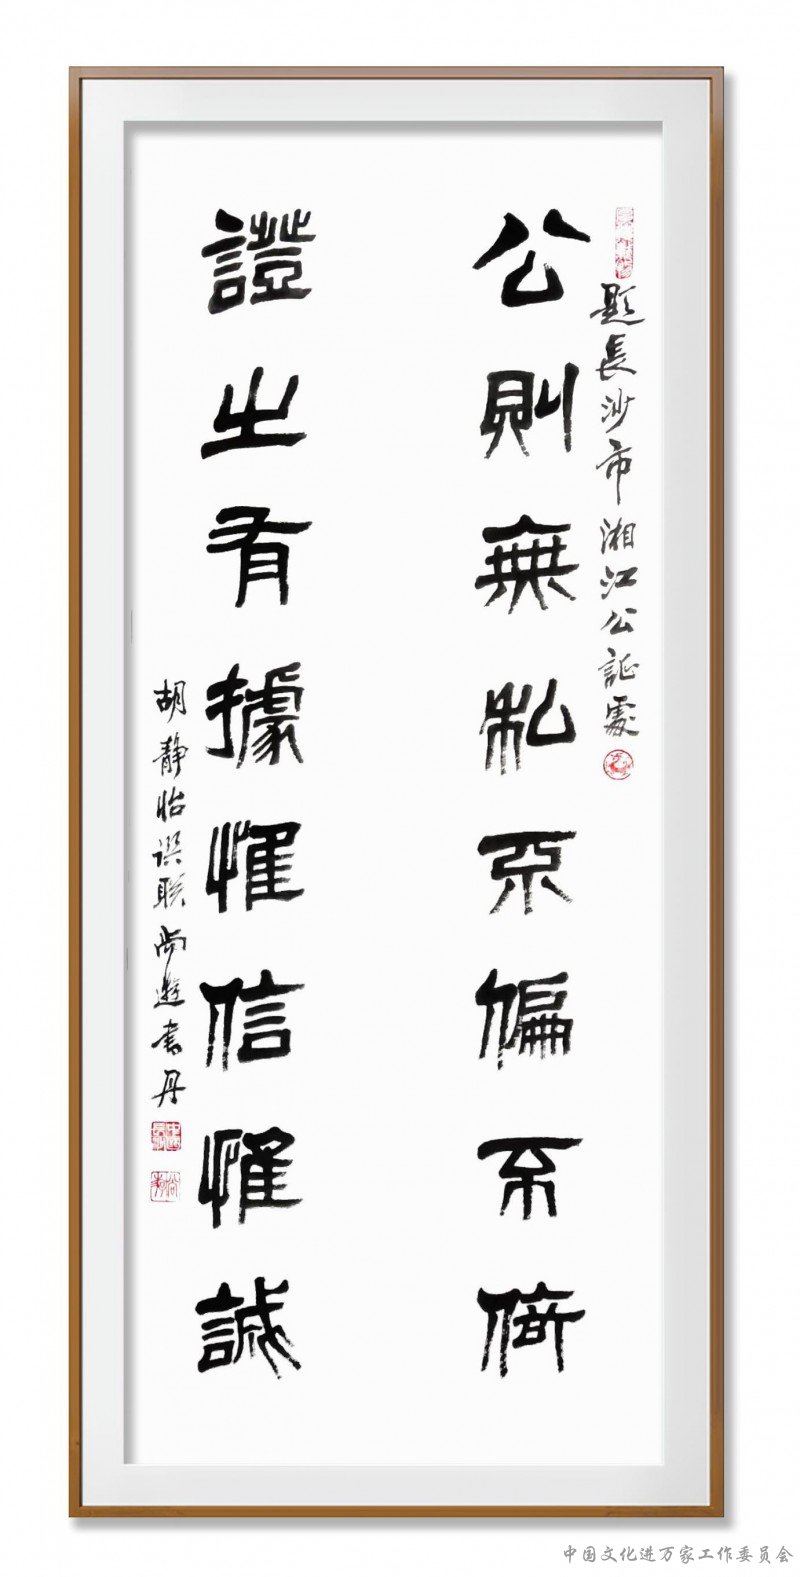 題長沙市湘江公証處
公則無私不偏不倚
證之有據惟信惟誠
胡静怡撰联尚遊書丹
中国文化进万家工作委员会